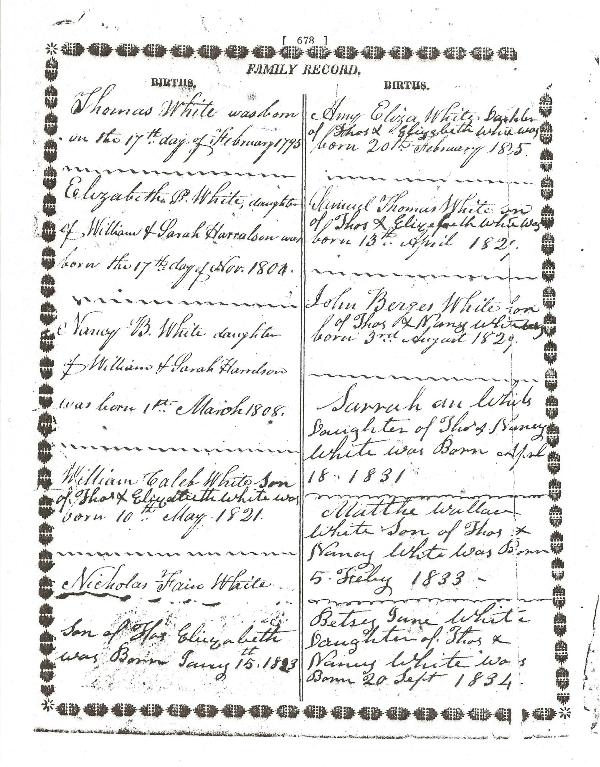 [ 678 ]
FAMILY RECORD.
BIRTHS.
Thomas White was born
on the 17th day of February 1795
Elizabeth P. White, daughter
of William & Sarah Harralson was
born the 17th day of Nov. 1804.
Nancy B. White daughter
of William & Sarah
was born 1st March 1808.
William Caleb White Son
of Thos & Elizabeth White was
born 10th May 1821
Nicholas Fain White
Son of Thos Elizabeth
was Born Jany 15th 1823
BIRTHS.
Amy Eliza White Daughter
of Thos & Elizabeth White was
born 20th February 1825.
Samuel Thomas White son
of Thos & Elizabeth White was
born 13th April 182
John Berges White Son
of Thos & Nancy White was
born 3rd August 1829.
Sarrah an White
Daughter of Thos & Nancy
White was Born April
18 1831
Matthe
White Son of Thos &
Nancy White was Born
5 Feby 1833 -
Betsey Jane White
Daughter of Thos &
Nancy White was
Born 20 Sept 1834.